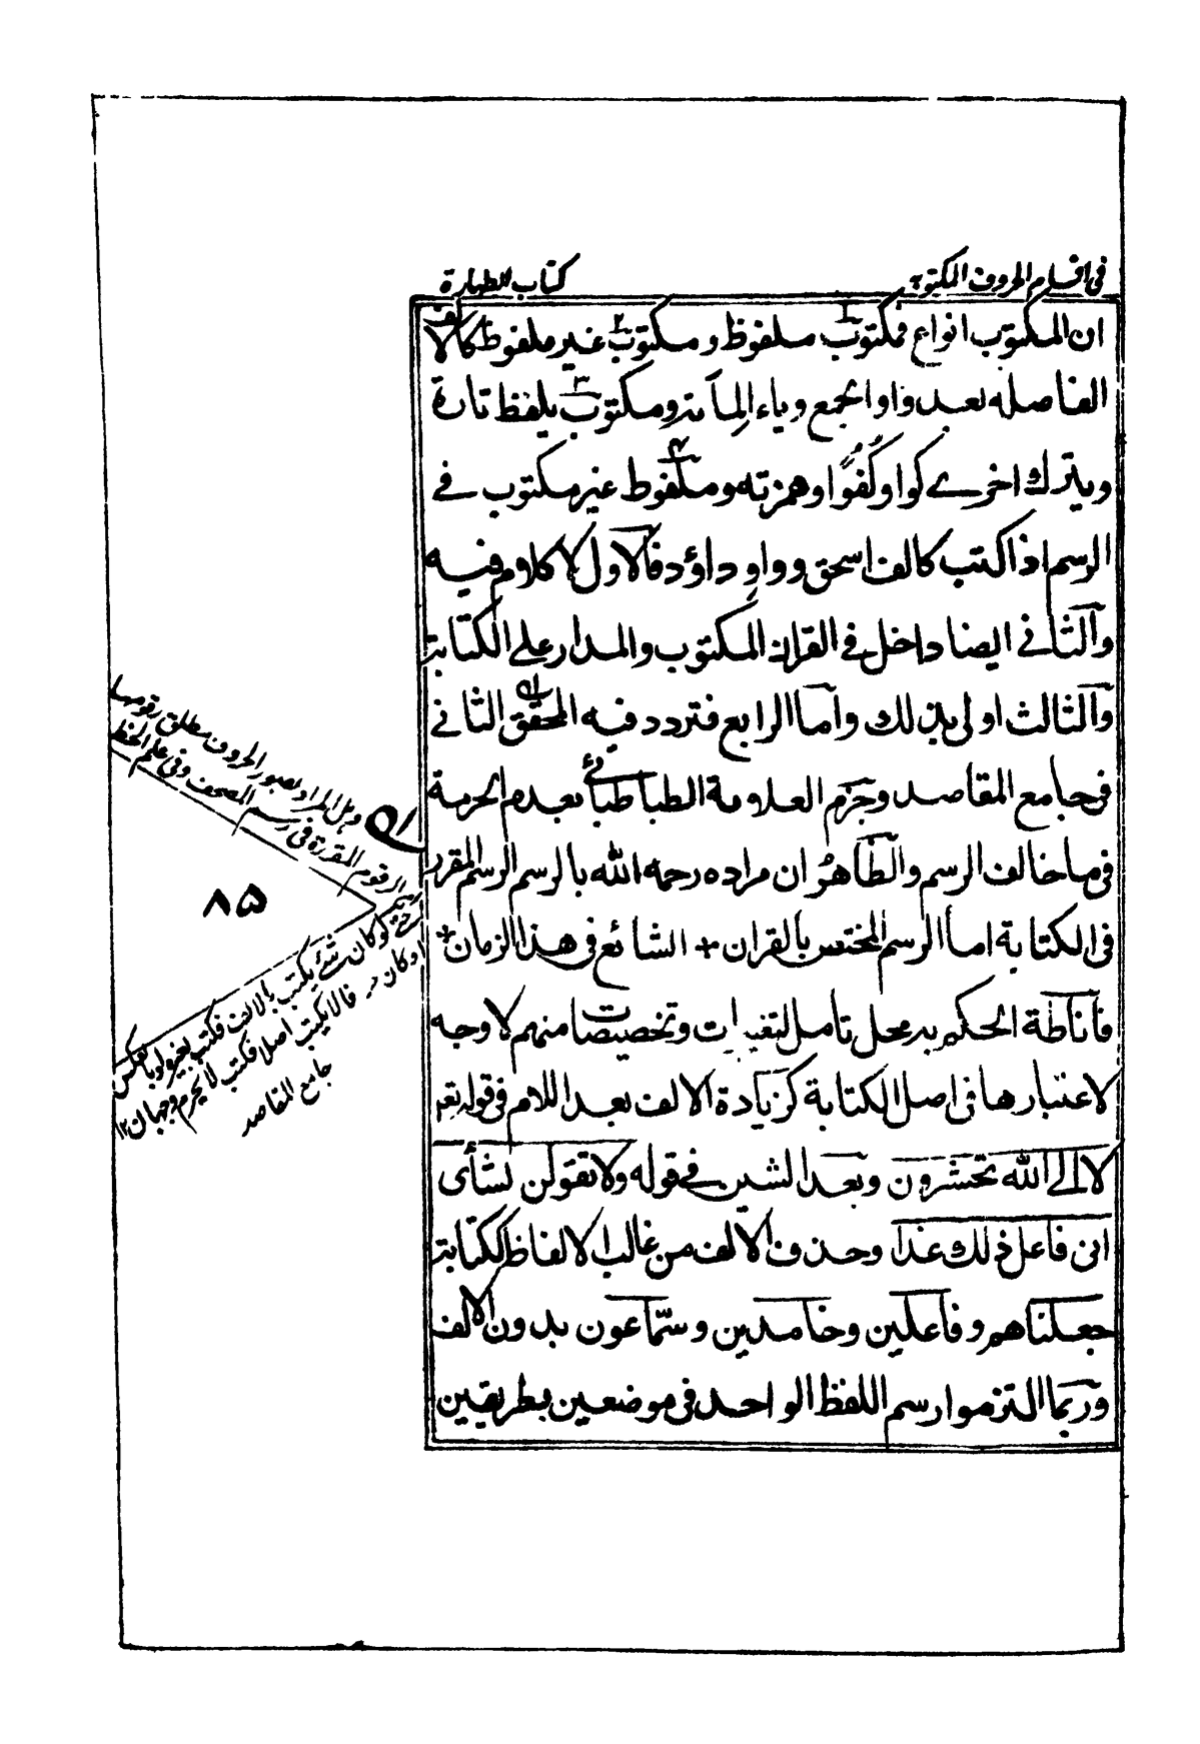 فى اقسام الحروف المكتوبة
كتاب الطهارة
ان المكتوب انواع فمكتوب ملفوظ و مكتوب غير ملفوظ كالالف
الفاصله بعد واو الجمع وياء المائة ومكتوب يلفظ تارة
ويترك اخرے كواو كُفُوًا وهمزته وملفوظ غير مكتوب فے
الرسم اذا كتب كالف اسحق وواو داؤد فالاول لا كلام فيه
والثانے ايضا داخل فے القران المكتوب والمدار على الكتابة
والثالث اولى بذلك واما الرابع فتردد فيه المحقق الثانے
فى جامع المقاصد وجزم العلامة الطباطبائے بعدم الحرمة
فى ما خالف الرسم والظاهر ان مراده رحمه الله بالرسم الرسم المقرر
فى الكتابة اما الرسم المختص بالقران + الشائع فى هذا الزمان +
فاناطة الحكم به محل تامل لتغييرات وتخصيصات منهم لا وجه
لاعتبارها فى اصل الكتابة كزيادة الالف بعد اللام فى قوله تعه
لا الى الله تحشرون وبعد الشين فے قوله ولا تقولن لشأى
انى فاعل ذلك غدا وحذف الالف من غالب الالفاظ ككتابة
جعلناهم وفاعلين وخامدين وسمّاعون بدون الالف
وربما التزموا رسم اللفظ الواحد فى موضعين بطريقين
وهل المراد بصور الحروف مطلق رقومها
الرقوم المقررة فى رسم المصحف وفى علم الخط
لو كان شئ يكتب بالالف فكتب بغير او بالعكس
او كان مما لا يكتب اصلا فكتب لا يحرم وجهان ١٢
جامع المقاصد
٨٥